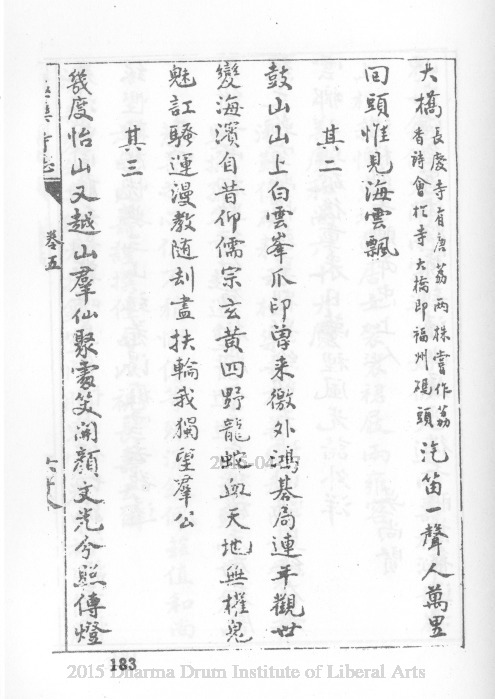 大橋長慶寺有唐荔兩株嘗作荔香詩會於寺大橋即福州碼頭汽笛一聲人萬里
回頭惟見海雲飄
其二
鼓山山上白雲峯爪印曾来徼外鴻棊局連年觀世
變海濱自昔仰儒宗玄黄四野龍蛇血天地無權鬼
魅訌騷運漫教隨刦盡扶輪我獨望羣公
其三
幾度怡山又越山羣仙聚處笑開顏文光分照傳燈
卷五
六十八
183
2015 Dharma Drum Institute of Liberal Arts